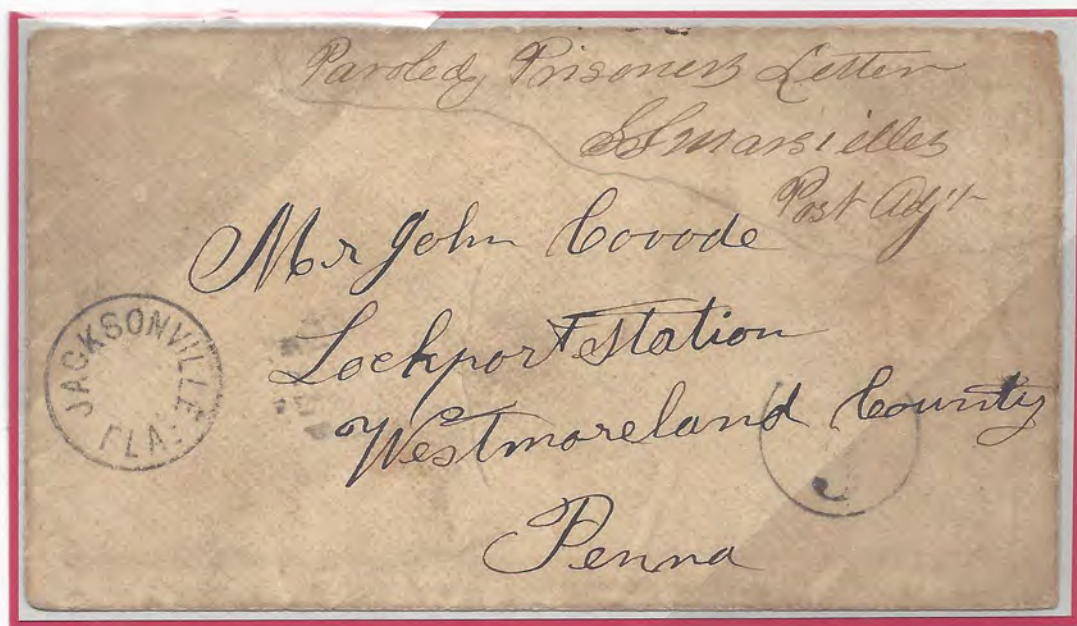 Paroled Prisoners Letter
Post Adj't
Mr John Covode
Lockport Station
Westmoreland County
Penna
JACKSONVILLE
FLA.